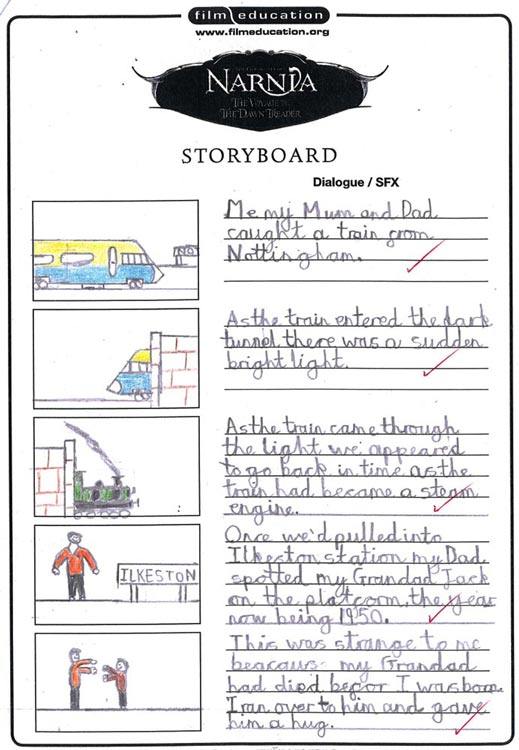 film education
www.filmeducation.org
NARNIA
THE VOYAGE OF
THE DAWN TREADER
STORYBOARD
Dialogue / SFX
Me my Mum and Dad
caught a train from
Nottingham.
As the train entered the dark
tunnel there was a sudden
bright light.
As the train came through
the light we appeared
to go back in time as the
train had became a steam
engine.
Once we'd pulled into
Ilkeston station my Dad
spotted my Grandad Jack
on the platform, the year
now being 1950.
ILKESTON
This was strange to me
beacaus my Grandad
had died befor I was born.
I ran over to him and gave
him a hug.